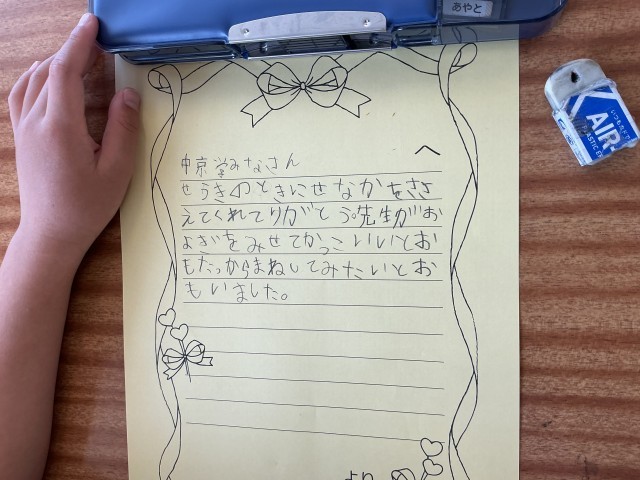 あやと
中京学みなさん へ
せうきのときにせなかをささ
えてくれてりがとう。先生がお
よぎをみせてかっこいいとお
もたっからまねしてみたいとお
もいました。
より
いつもなんでも
AIR-
PLASTIC E